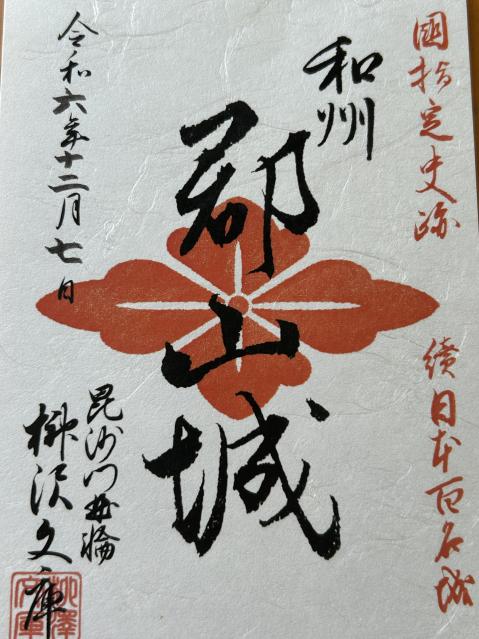 國指定史跡
續日本百名城
和州
郡山城
令和六年十二月七日
毘沙門曲輪
柳沢文庫
柳澤文庫